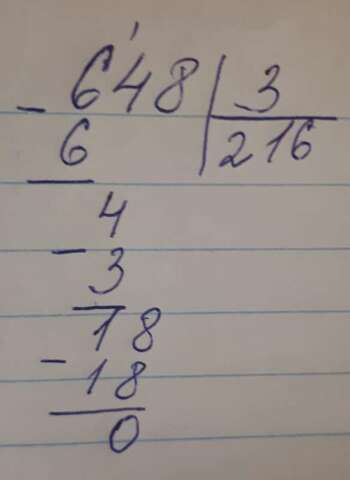 - 648 | 3
6 216
4
- 3
18
- 18
0